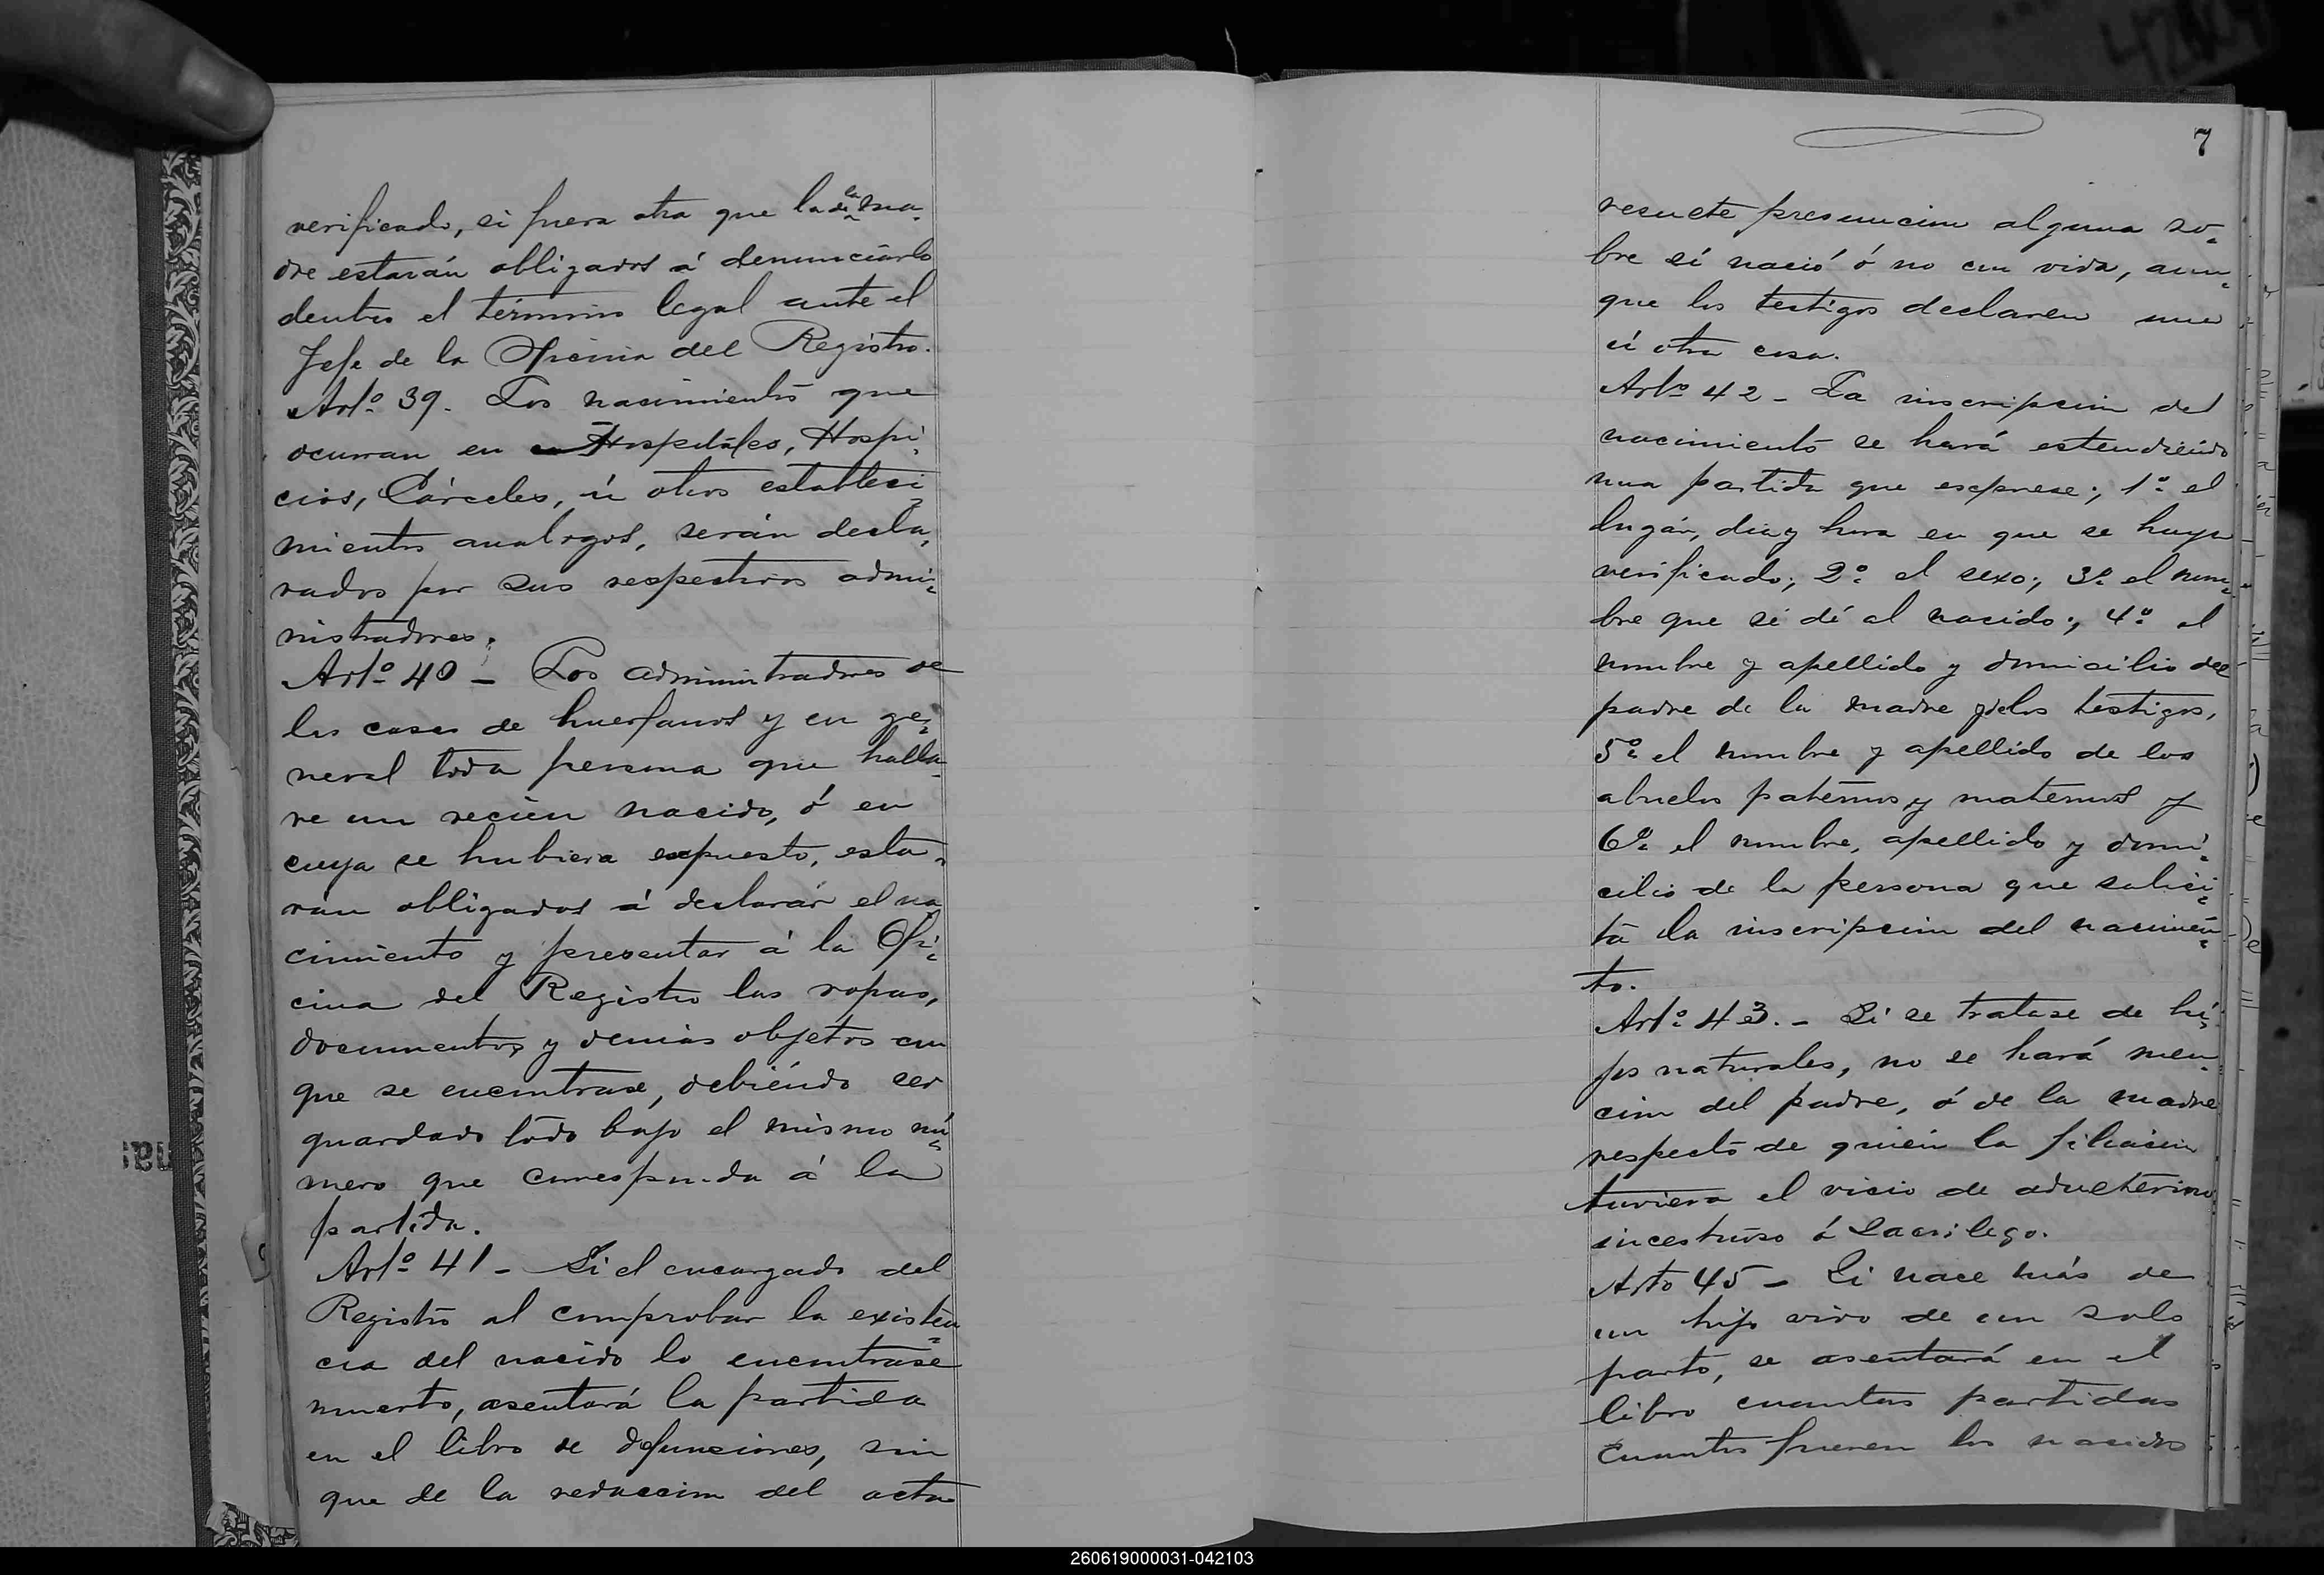 verificado, si fuera otra que la de la ma-
dre estarán obligados á denunciarlo
dentro el término legal ante el
Jefe de la Oficina del Registro.
Artº 39. Los nacimientos que
ocurran en Hospitales, Hospi-
cios, Cárceles, ú otros estableci-
mientos analogos, serán decla-
rados por sus respectivos admi-
nistradores.
Artº 40 - Los administradores de
las casas de huerfanos y en ge-
neral toda persona que halla-
re un recien nacido, ó en
cuya se hubiera expuesto, esta-
ran obligados á declarar el na
cimiento y presentar á la Ofi-
cina del Registro las ropas,
documentos y demás objetos con
que se encontrase, debiendo ser
guardado todo bajo el mismo nú-
mero que corresponda á la
partida.
Artº 41 - Si el encargado del
Registro al comprobar la existen-
cia del nacido lo encontrase
muerto, asentará la partida
en el libro de defunciones, sin
que de la redaccion del acta
7
resulte presuncion alguna so-
bre si nació ó no con vida, aun-
que los testigos declaren una
ú otra cosa.
Artº 42 - La inscripcion del
nacimiento se hará estendiendo
una partida que esprese; 1º el
lugar, dia y hora en que se haya
verificado; 2º el sexo; 3º el nom-
bre que se dé al nacido; 4º el
nombre y apellido y domicilio del
padre de la madre y de los testigos,
5º el nombre y apellido de los
abuelos paternos y maternos y
6º el nombre, apellido y domi-
cilio de la persona que solici-
ta la inscripcion del nacimien-
to.
Artº 43. - Si se tratase de hi-
jos naturales, no se hará men-
cion del padre, ó de la madre
respecto de quien la filiacion
tuviera el vicio de adulterino
incestuoso ó sacrilego.
Arto 45 - Si nace más de
un hijo vivo de un solo
parto, se asentará en el
libro cuantas partidas
cuantos fueren los nacidos
260619000031-042103